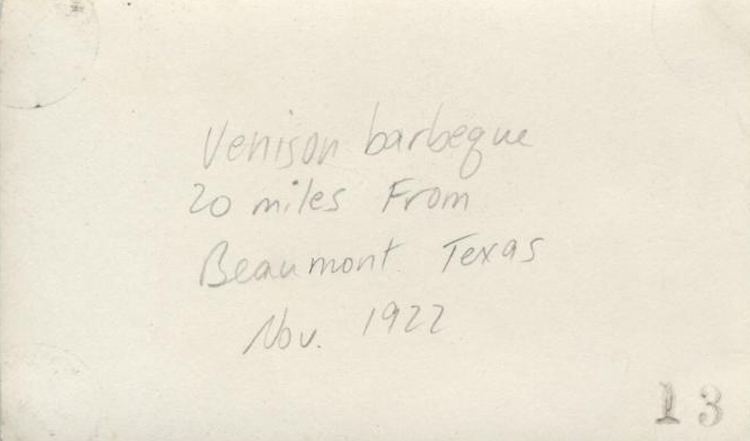 Venison barbeque
20 miles From
Beaumont Texas
Nov. 1922
13